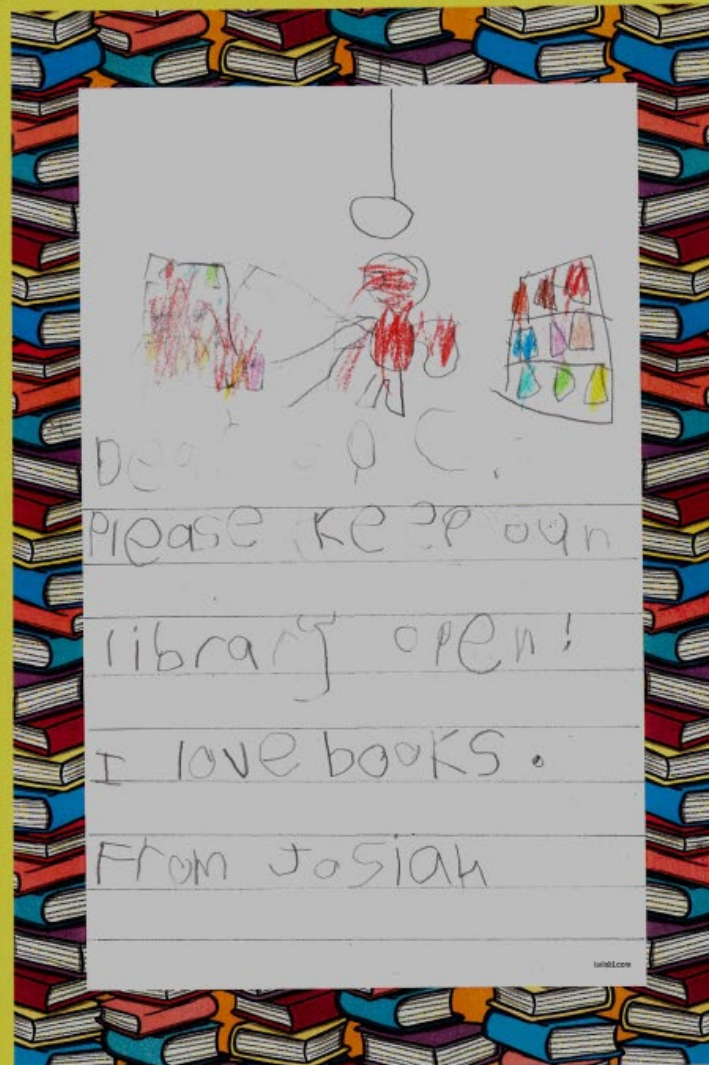 Dear
Please keep oun
library open!
I love books.
From Josiah